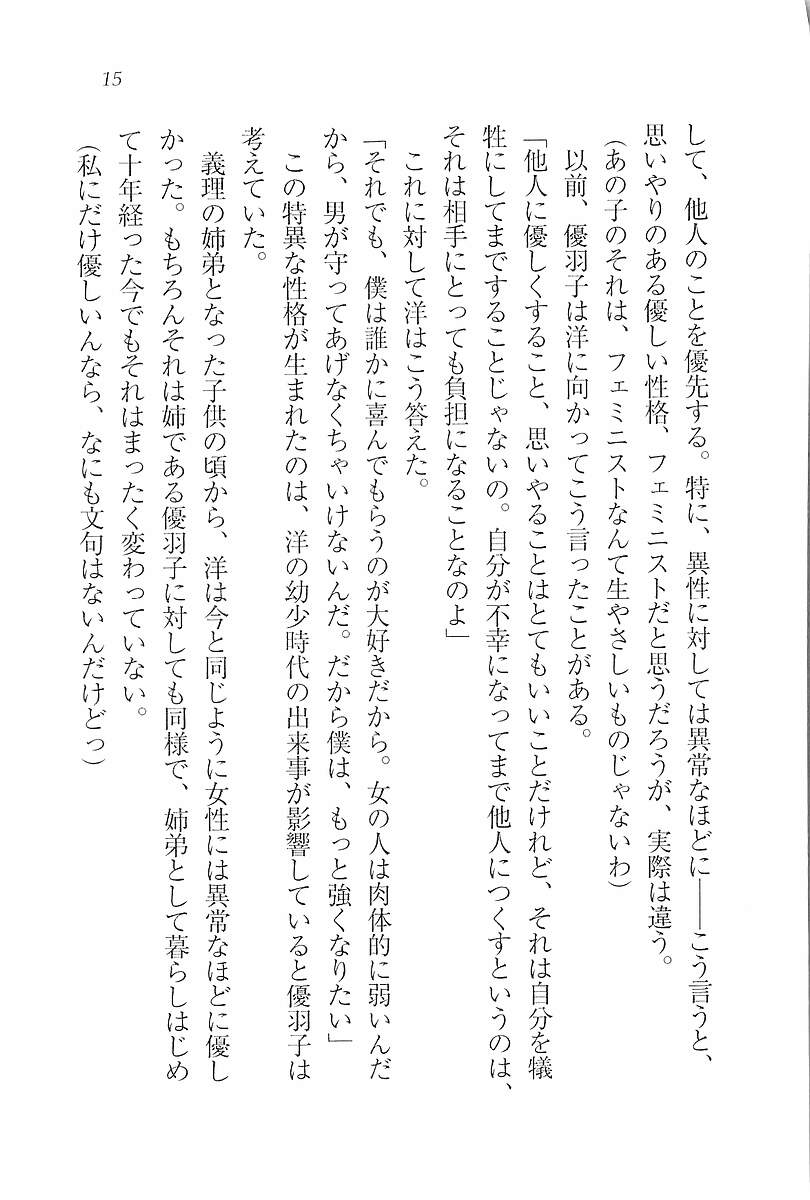 15
して、他人のことを優先する。特に、異性に対しては異常なほどに――こう言うと、
思いやりのある優しい性格、フェミニストだと思うだろうが、実際は違う。
(あの子のそれは、フェミニストなんて生やさしいものじゃないわ)
以前、優羽子は洋に向かってこう言ったことがある。
「他人に優しくすること、思いやることはとてもいいことだけれど、それは自分を犠
牲にしてまですることじゃないの。自分が不幸になってまで他人につくすというのは、
それは相手にとっても負担になることなのよ」
これに対して洋はこう答えた。
「それでも、僕は誰かに喜んでもらうのが大好きだから。女の人は肉体的に弱いんだ
から、男が守ってあげなくちゃいけないんだ。だから僕は、もっと強くなりたい」
この特異な性格が生まれたのは、洋の幼少時代の出来事が影響していると優羽子は
考えていた。
義理の姉弟となった子供の頃から、洋は今と同じように女性には異常なほどに優し
かった。もちろんそれは姉である優羽子に対しても同様で、姉弟として暮らしはじめ
て十年経った今でもそれはまったく変わっていない。
(私にだけ優しいんなら、なにも文句はないんだけどっ)